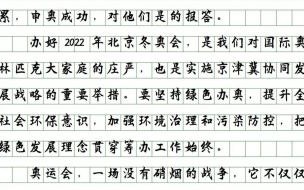 累，申奥成功，对他们是的报答。
办好 2022 年北京冬奥会，是我们对国际奥
林匹克大家庭的庄严，也是实施京津冀协同发
展战略的重要举措。要坚持绿色办奥，提升全
社会环保意识，加强环境治理和污染防控，把
绿色发展理念贯穿筹办工作始终。
奥运会，一场没有硝烟的战争，它不仅仅